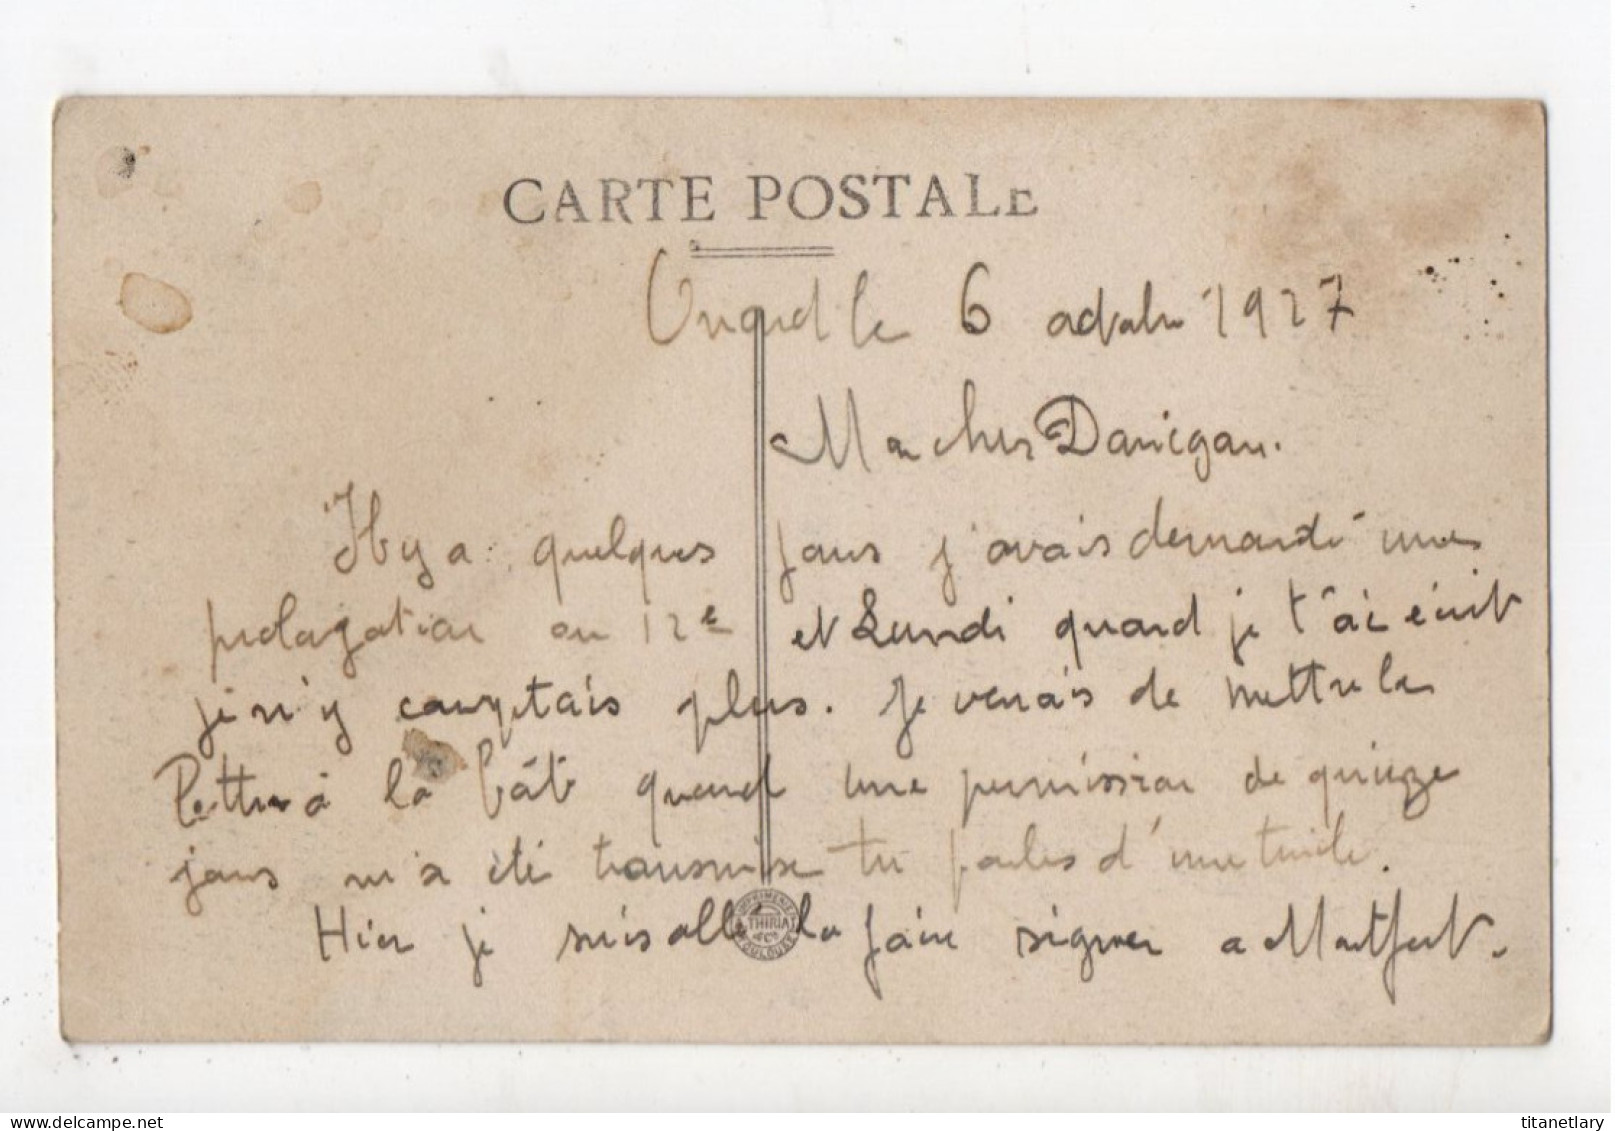 CARTE POSTALE
le 6 octobre 1927
Mon cher Danigau.
Il y a quelques jours j'avais demandé une
prolongation au 12e et Lundi quand je t'ai écrit
je n'y comptais plus. Je venais de mettre la
lettre à la bât quand une permission de quinze
jours m'a été transmise tu parles d'une tuile.
Hier je suis allé la faire signer a Montfort.
IMPRIMERIE
THIRIAT
& Cie
TOULOUSE
titanetlary